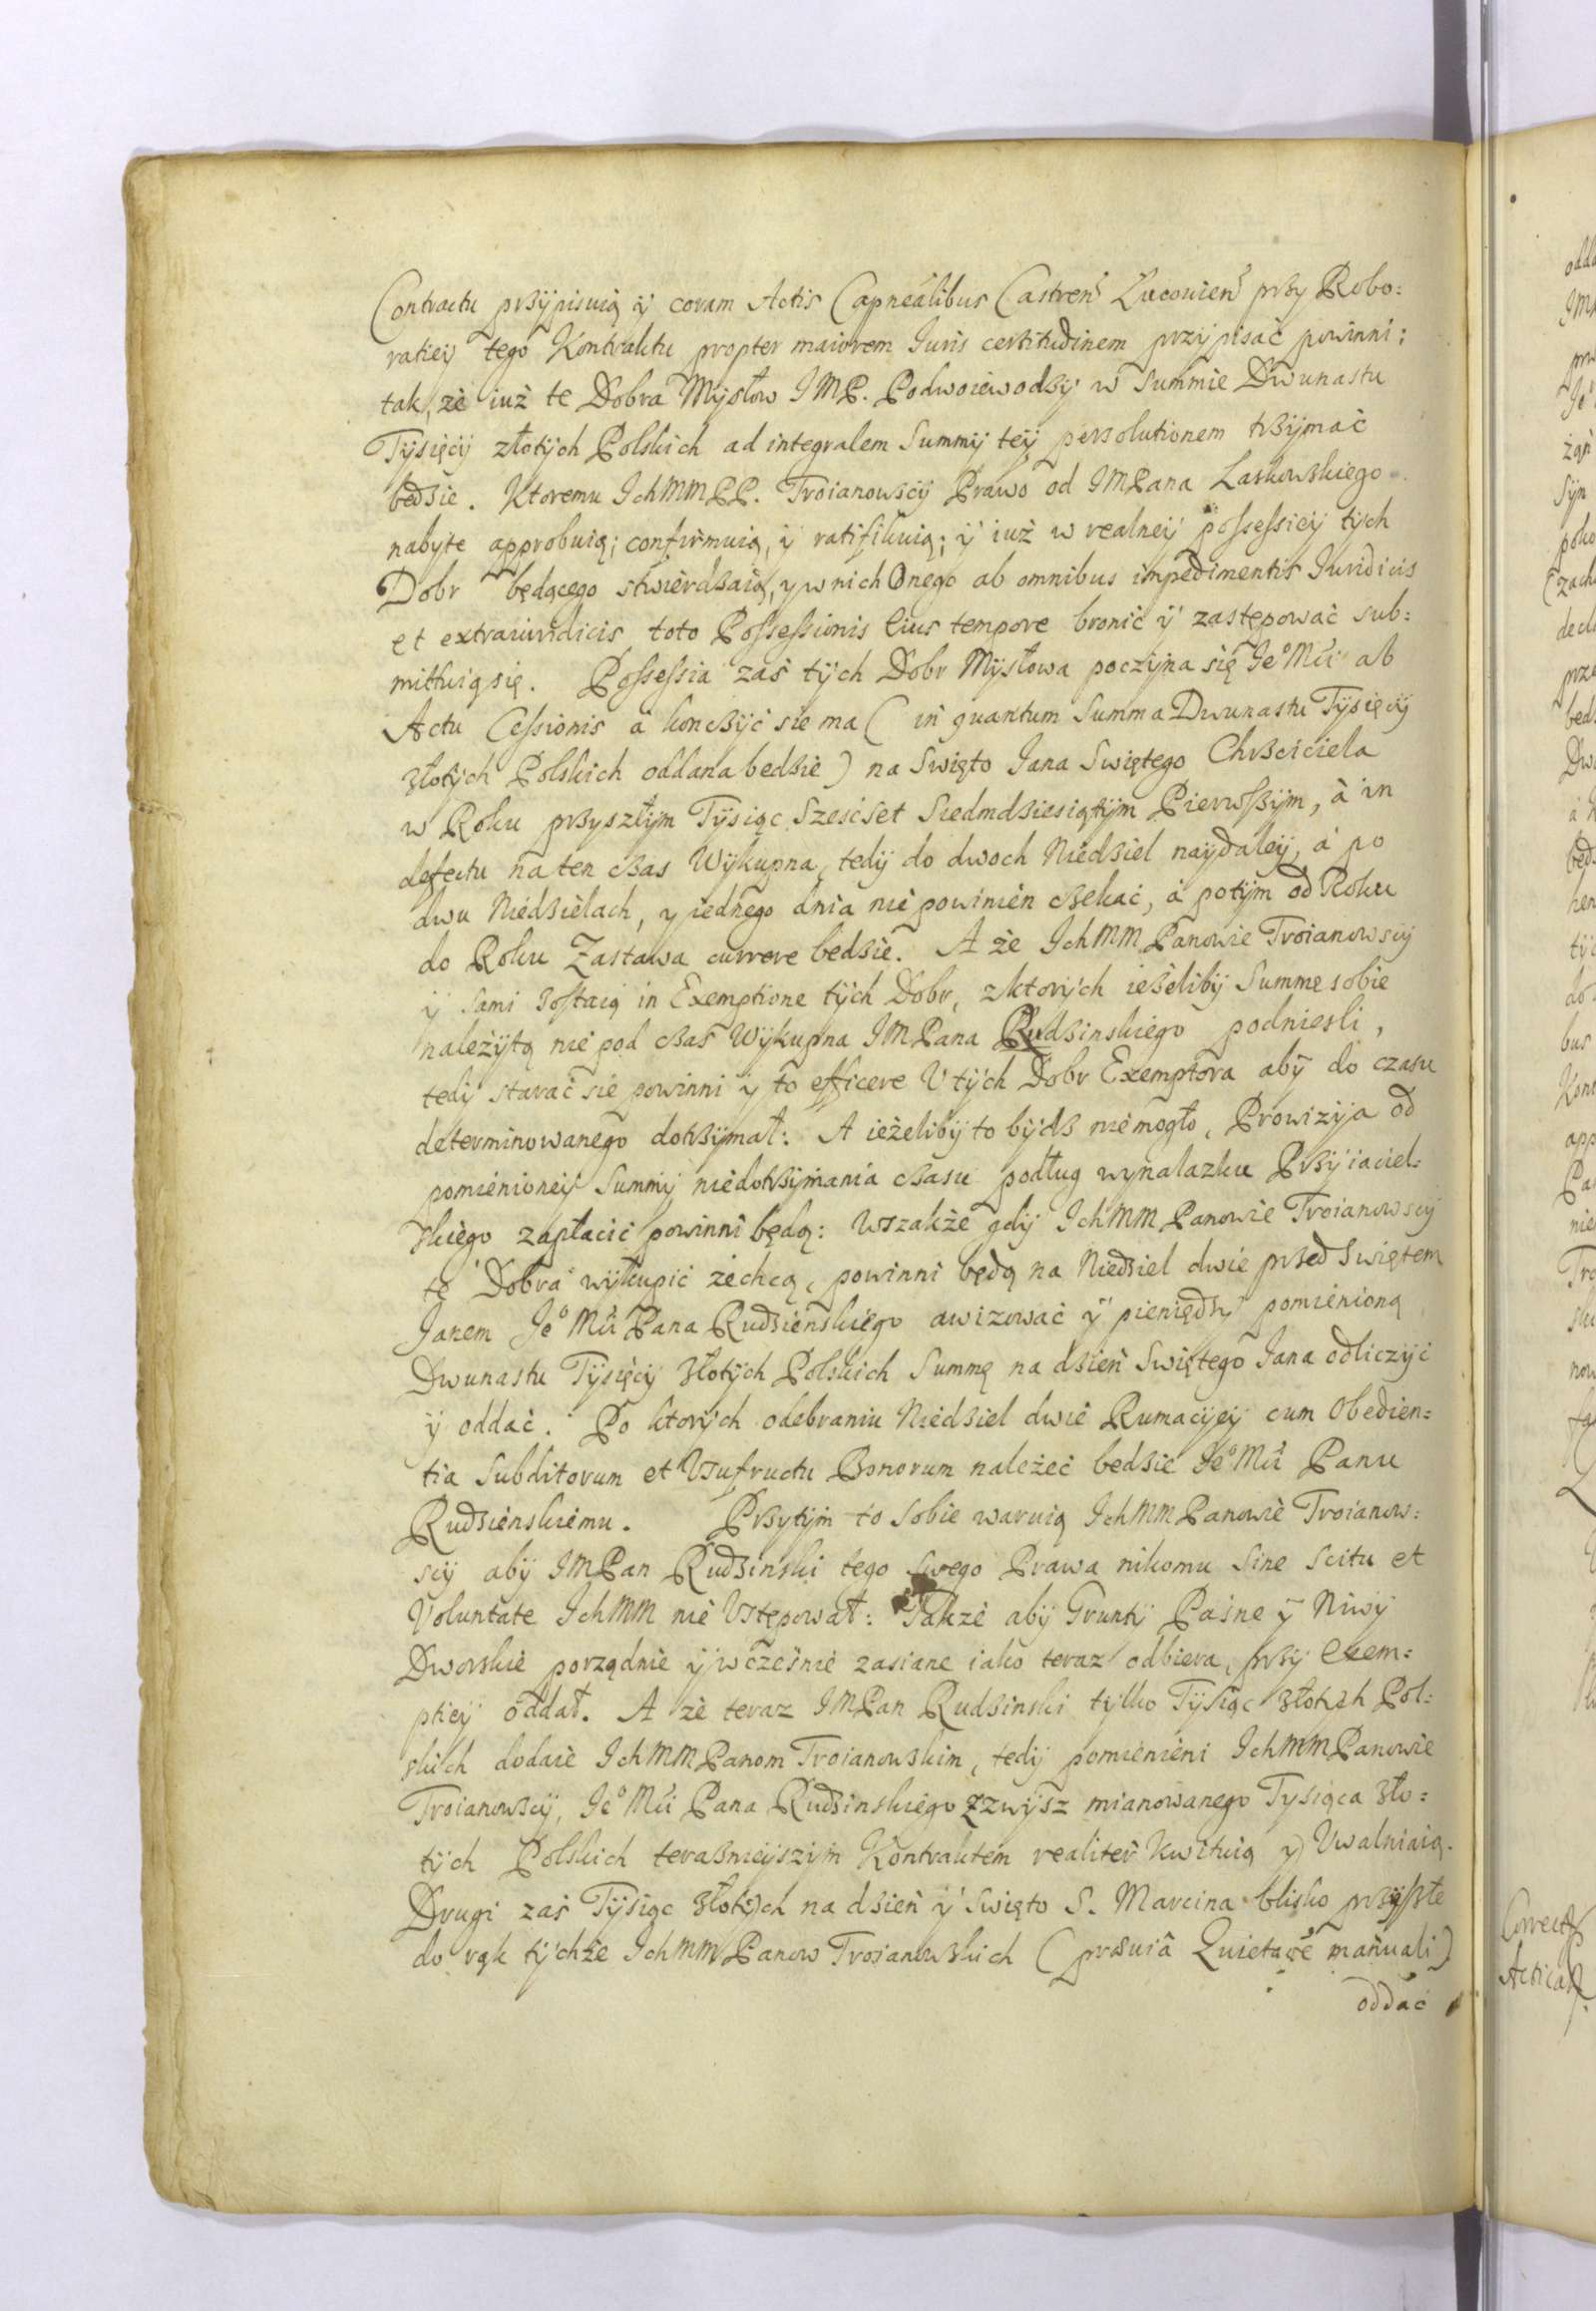 Contractu przÿpisuią ÿ coram Actis Capnealibus Castren̄ Łucouien̄ przy Robo:
ratieÿ tego Kontraktu propter maiorem Iuris certitudinem przÿpisac powinni:
tak, ze iuż te Dobra Mysłow IMP. Podwoiewodzÿ w Summie Dwunastu
Tÿsięcÿ złotÿch Polskich ad integralem Summÿ teÿ persolutionem trzÿmac
bedzie. Ktoremu IchMMPP. Troianowscÿ Prawo od IMPana Laskowskiego
nabyte approbuią; confirmuią, ÿ ratifikuią; ÿ iuż w realneÿ possessieÿ tÿch
Dobr będącego stwierdzaią, y w nich Onego ab omnibus impedimentis Iuridicis
et extraiuridicis toto Possessionis Eius tempore bronić ÿ zastępować sub:
mittuią się. Possessia zaś tÿch Dobr Mÿsłowa poczÿna się Ie° Mći ab
Actu Cessionis a konczÿć sie ma (in quantum Summa Dwunastu Tÿsięcÿ
złotÿch Polskich oddana bedzie) na Swięto Iana Swiętego Chrzciciela
w Roku przyszłÿm Tÿsiąc Sześćset Siedmdziesiątÿm Pierwszÿm, à in
defectu na ten czas Wÿkupna, tedÿ do dwoch Niedziel naÿdaleÿ, à po
dwu Niedzielach, y iednego dnia nie powinien czekac, à potÿm od Roku
do Roku Zastawa currere bedzie. A że IchMM Panowie Troianowscÿ
ÿ sami zostaią in Exemptione tÿch Dobr, z ktorÿch ieżelibÿ Summe sobie
należÿtą nie pod czas Wÿkupna IMPana Rudzinskiego podniesli,
tedÿ starać sie powinni ÿ to efficere V tÿch Dobr Exemptora abÿ do czasu
determinowanego dotrzÿmał: A ieżelibÿ to bÿdz nie mogło, Prowizÿa od
pomienioneÿ Summÿ niedotrzÿmania czasu podług wynalazku Przÿiaciel:
skiego zapłacić powinni będą: wszakże gdÿ IchMM Panowie Troianowscÿ
te Dobra wÿkupić zechcą, powinni będą na Niedziel dwie przed Swiętem
Janem Ie° Mći Pana Rudzienskiego awizować ÿ pieniędzy pomienioną
Dwunastu Tÿsięcÿ złotÿch Polskich Summę na dzień Swiętego Iana odliczÿć
ÿ oddać. Po ktorÿch odebraniu Niedziel dwie Rumacÿeÿ cum Obedien:
tia Subditorum et Vsufructu Bonorum należeć bedzie Ie° Mći Panu
Rudzienskiemu. Przytÿm to Sobie waruią IchMMPanowie Troianow:
scÿ abÿ IMPan Rudzinski tego Swego Prawa nikomu Sine Scitu et
Voluntate IchMM nie Vstępował: Także abÿ Gruntÿ Paśne ÿ Niwÿ
Dworskie porządnie ÿ wcześnie zasiane iako teraz odbiera, przÿ exem:
ptieÿ oddał. A że teraz IMPan Rudzinski tylko Tÿsiąc złotÿch Pol:
skich dodaie IchMMPanom Troianowskim, tedÿ pomienieni IchMMPanowie
Troianowscÿ, Ie° Mći Pana Rudzinskiego zzwÿsz mianowanego Tysiąca zło:
tÿch Polskich teraznieÿszÿm Kontraktem realiter kwituią y Vwalniaią.
Drugi zaś Tÿsiąc złotÿch na dzień ÿ Swięto S. Marcina blisko przÿszłe
do rąk tÿchże IchMMPanow Troianowskich (prævia Quietaõe manuali)
oddać